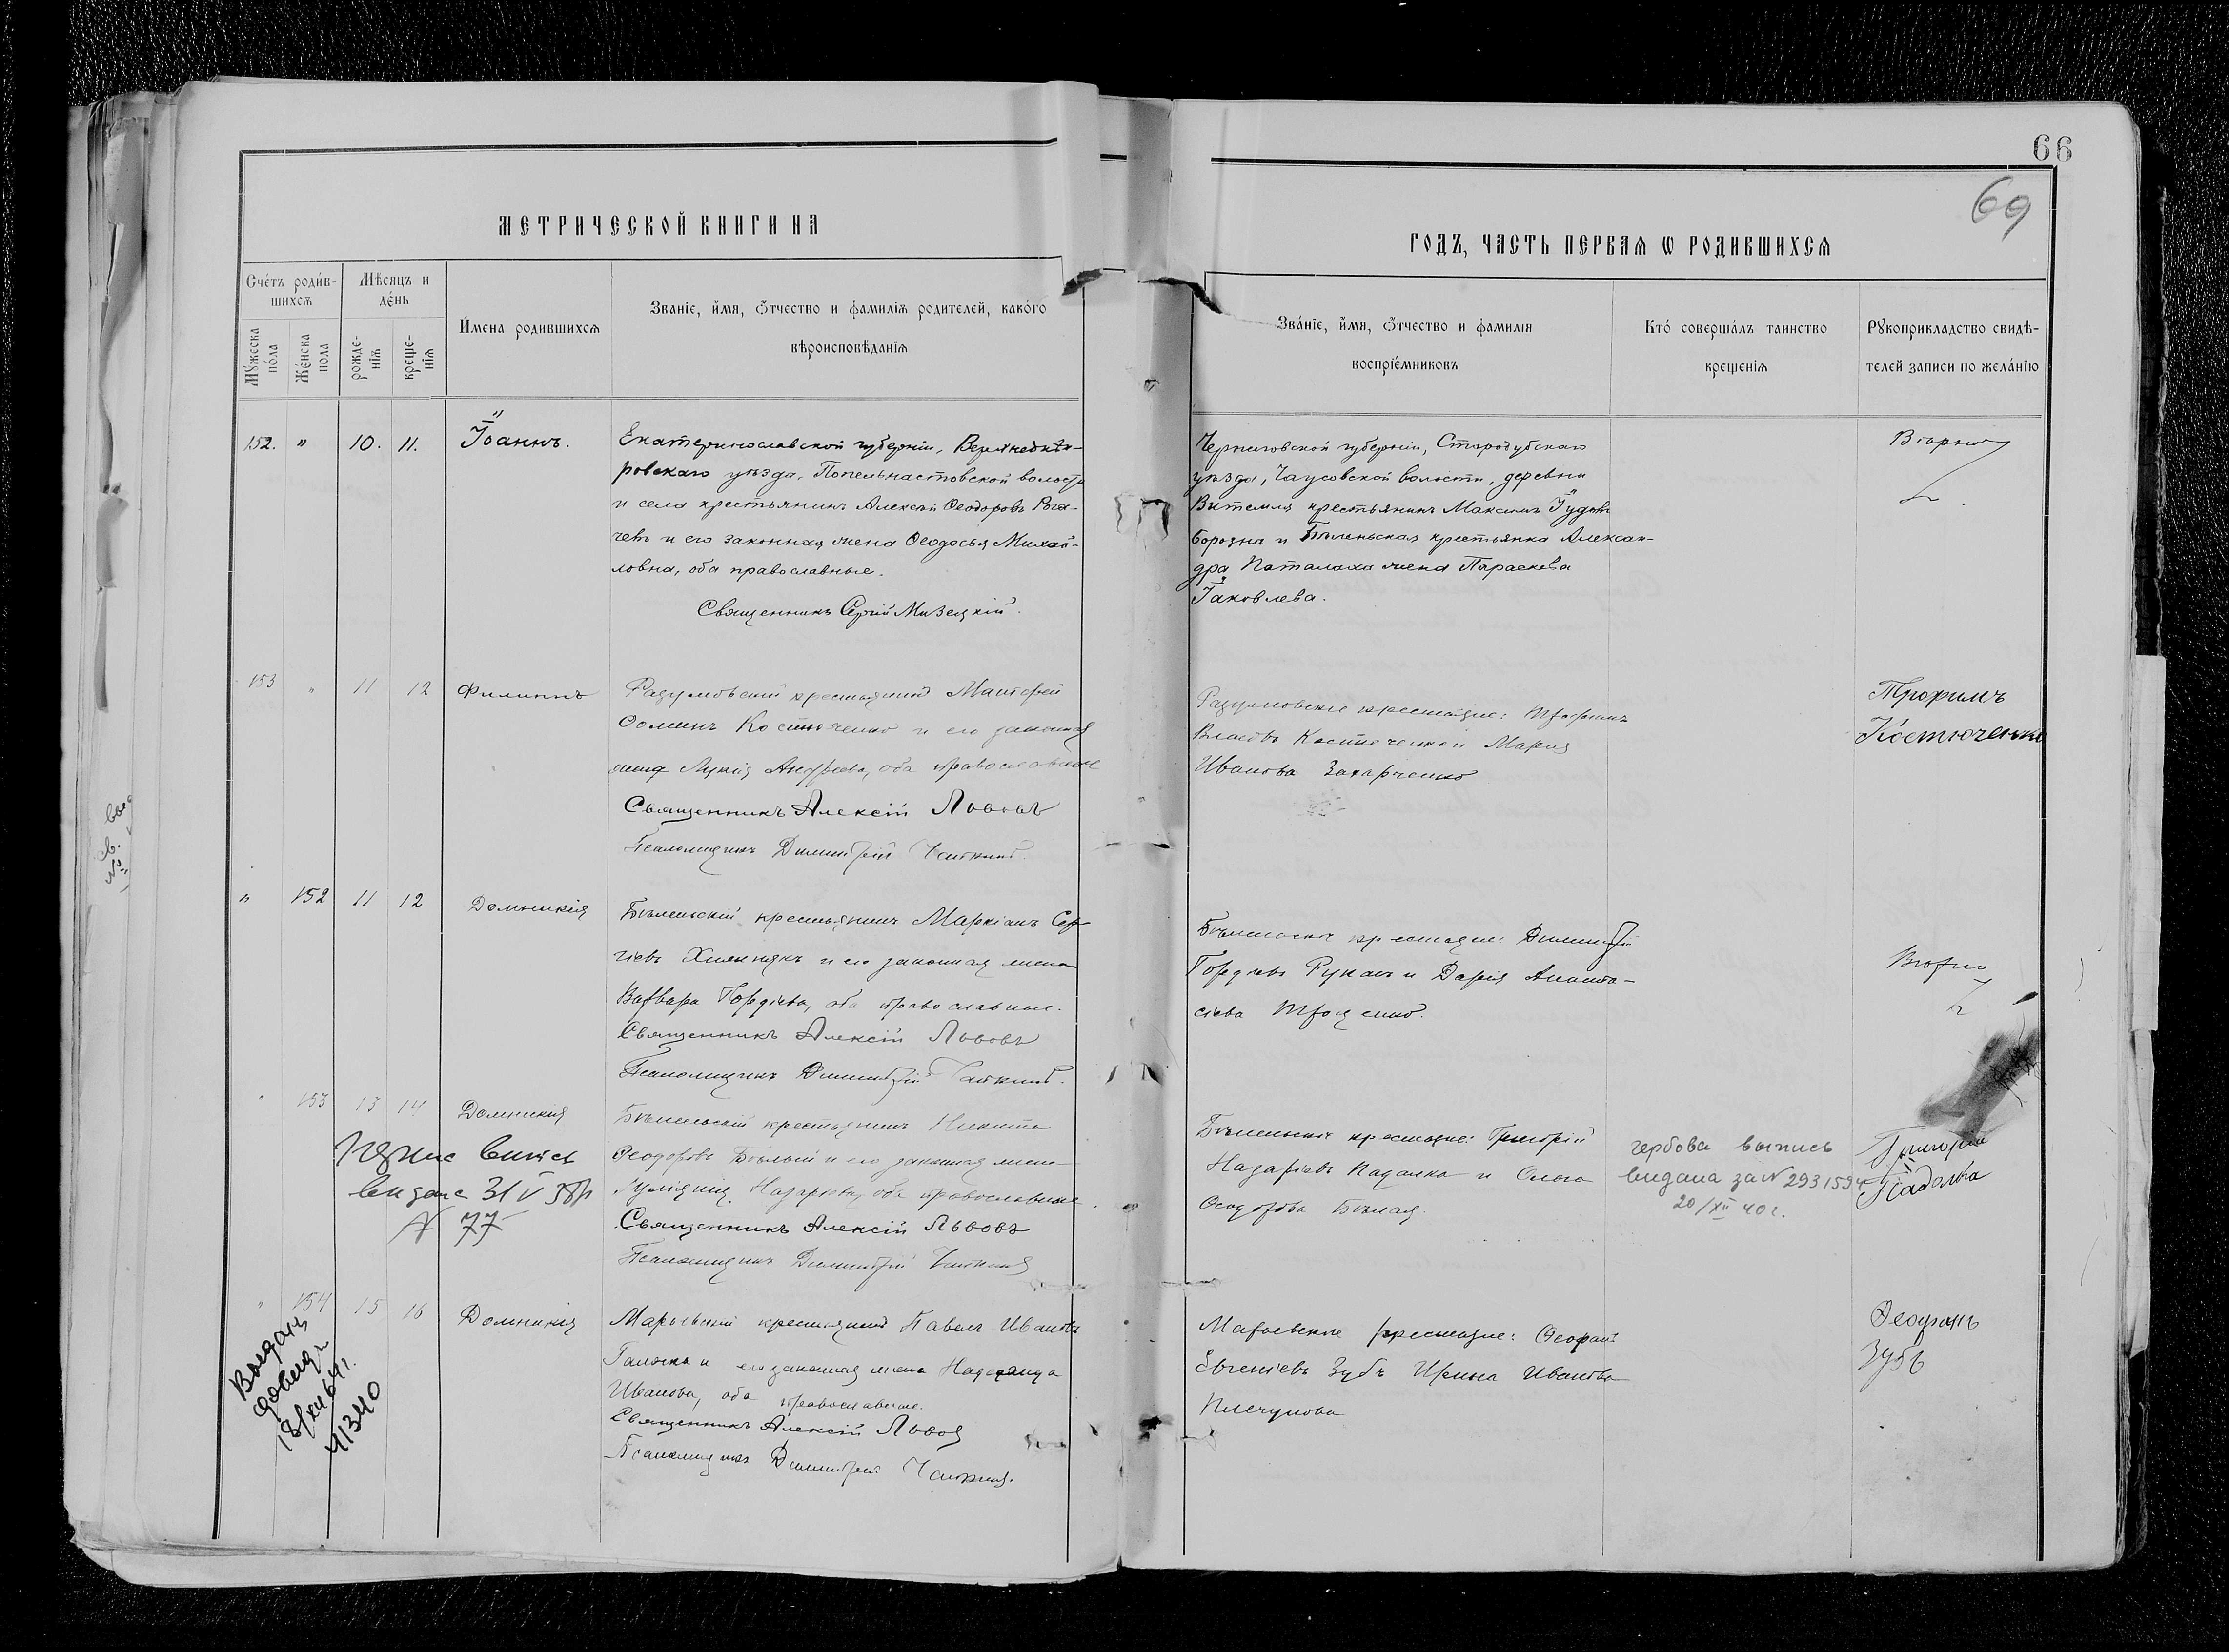 66
69
МЕТРИЧЕСКОЙ КНИГИ НА
ГОДЪ, ЧАСТЬ ПЕРВАЯ Ѡ РОДИВШИХСЯ
Счетъ родившихся
Мѣсяцъ и день
Мужеска пола
Женска пола
рожденія
крещенія
Имена родившихся
Званіе, имя, отчество и фамилія родителей, какого
вѣроисповѣданія
Званіе, имя, отчество и фамилія
воспріемниковъ
Кто совершалъ таинство
крещенія
Рукоприкладство свидѣ-
телей записи по желанію
152. " 10. 11. Іоаннъ.
Екатеринославской губерніи, Верхнеднѣп-
ровскаго уѣзда, Попельнастовской волости
и села крестьянинъ Алексѣй Ѳеодоровъ Рога-
чевъ и его законная жена Ѳеодосья Михай-
ловна, оба православные.
Священникъ Сергій Мизецкій.
Черниговской губерніи, Стародубскаго
уѣзда, Чаусовской волости, деревни
Витемля крестьянинъ Максимъ
Борозна и Бѣленьская крестьянка Алексан-
дра Паталаха жена Параскева
Іаковлева.
153 " 11 12 Филиппъ
Разумовскій крестьянинъ
Ѳоминъ Костюченко и его законная
жена Лукія Андреева, оба православные
Священникъ Алексій Львовъ
Псаломщикъ Димитрій
Разумовские крестьяне: Трофимъ
Власовъ Костюченко и Мария
Иванова Захарченко
Трофимъ
Костюченко
" 152 11 12 Домникія
Бѣленьскій крестьянинъ Маркіанъ Сер-
гіевъ Хижнякъ и его законная жена
Варвара Гордіева, оба православные.
Священникъ Алексій Львовъ
Псаломщикъ Димитрій
Бѣленьскіе крестьяне: Димитрій
Гордіевъ Рукасъ и Дарія Анаста-
сіева Троценко.
" 153 13 14 Домникія
Бѣленьскій крестьянинъ Никита
Ѳеодоровъ Бѣлый и его законная жена
Назарьева, оба православные.
Священникъ Алексій Львовъ
Псаломщикъ Димитрій
Бѣленьскіе крестьяне: Григорій
Назаріевъ Падалка и Ольга
Ѳеодорова Бѣлая.
гербова выпись
видана за № 2931594
20/XII 40 г.
Григорій
Падалка
випись
видана 31 V 38р
№ 77
" 154 15 16 Домникія
Марьевскій крестьянинъ Павелъ Ивановъ
Галочка и его законная жена Надежда
Иванова, оба православные.
Священникъ Алексій Львовъ
Псаломщикъ Димитрій
Марьевские крестьяне: Ѳеофанъ
Евгеніевъ Зубъ Ирина Иванова
Плечунова
Ѳеофанъ
Зубъ
Выдана
18/XII 64 г.
41340